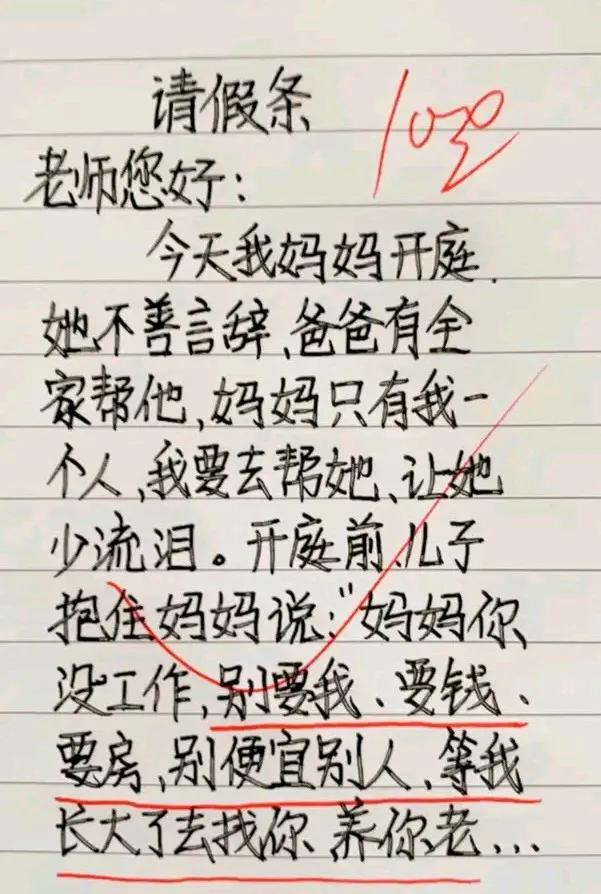 请假条
100
老师您好：
今天我妈妈开庭.
她不善言辞、爸爸有全
家帮他,妈妈只有我一
个人、我要去帮她、让她
少流泪。开庭前、儿子
抱住妈妈说:"妈妈你
没工作,别要我、要钱、
要房,别便宜别人,等我
长大了去找你、养你老...